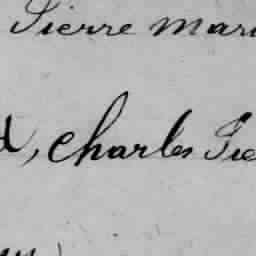 Pierre Mari
, Charles Pie